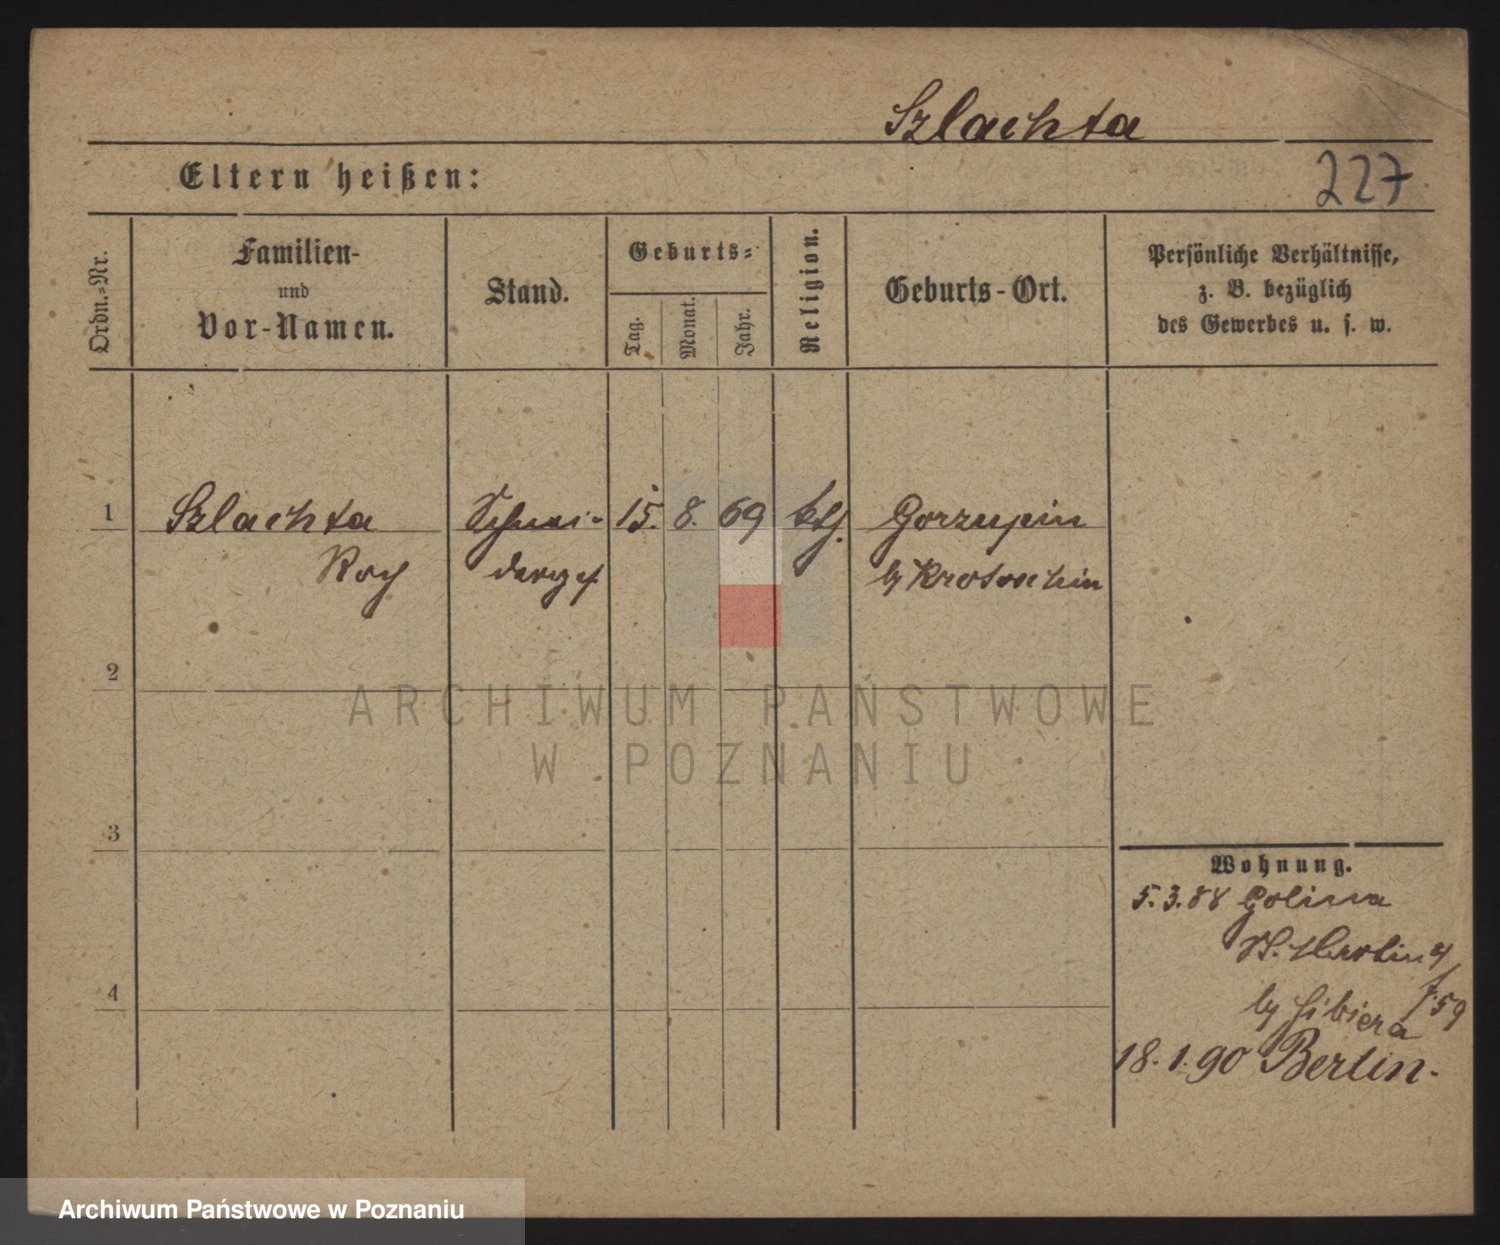 Szlachta
Eltern heißen:
227
Ordn.-Nr.
Familien-
und
Vor-Namen.
Stand.
Geburts-
Tag.
Monat.
Jahr.
Religion.
Geburts-Ort.
Persönliche Verhältnisse,
z. B. bezüglich
des Gewerbes u. s. w.
1 Szlachta Schnei- 15. 8. 69 kth. Gorzupin
Roch derges. b/ Krotoschin
2
ARCHIWUM PAŃSTWOWE
W POZNANIU
3
Wohnung.
5.3.88 Golina
St. Martin
4
b/ 59
18.1.90 Berlin.
Archiwum Państwowe w Poznaniu